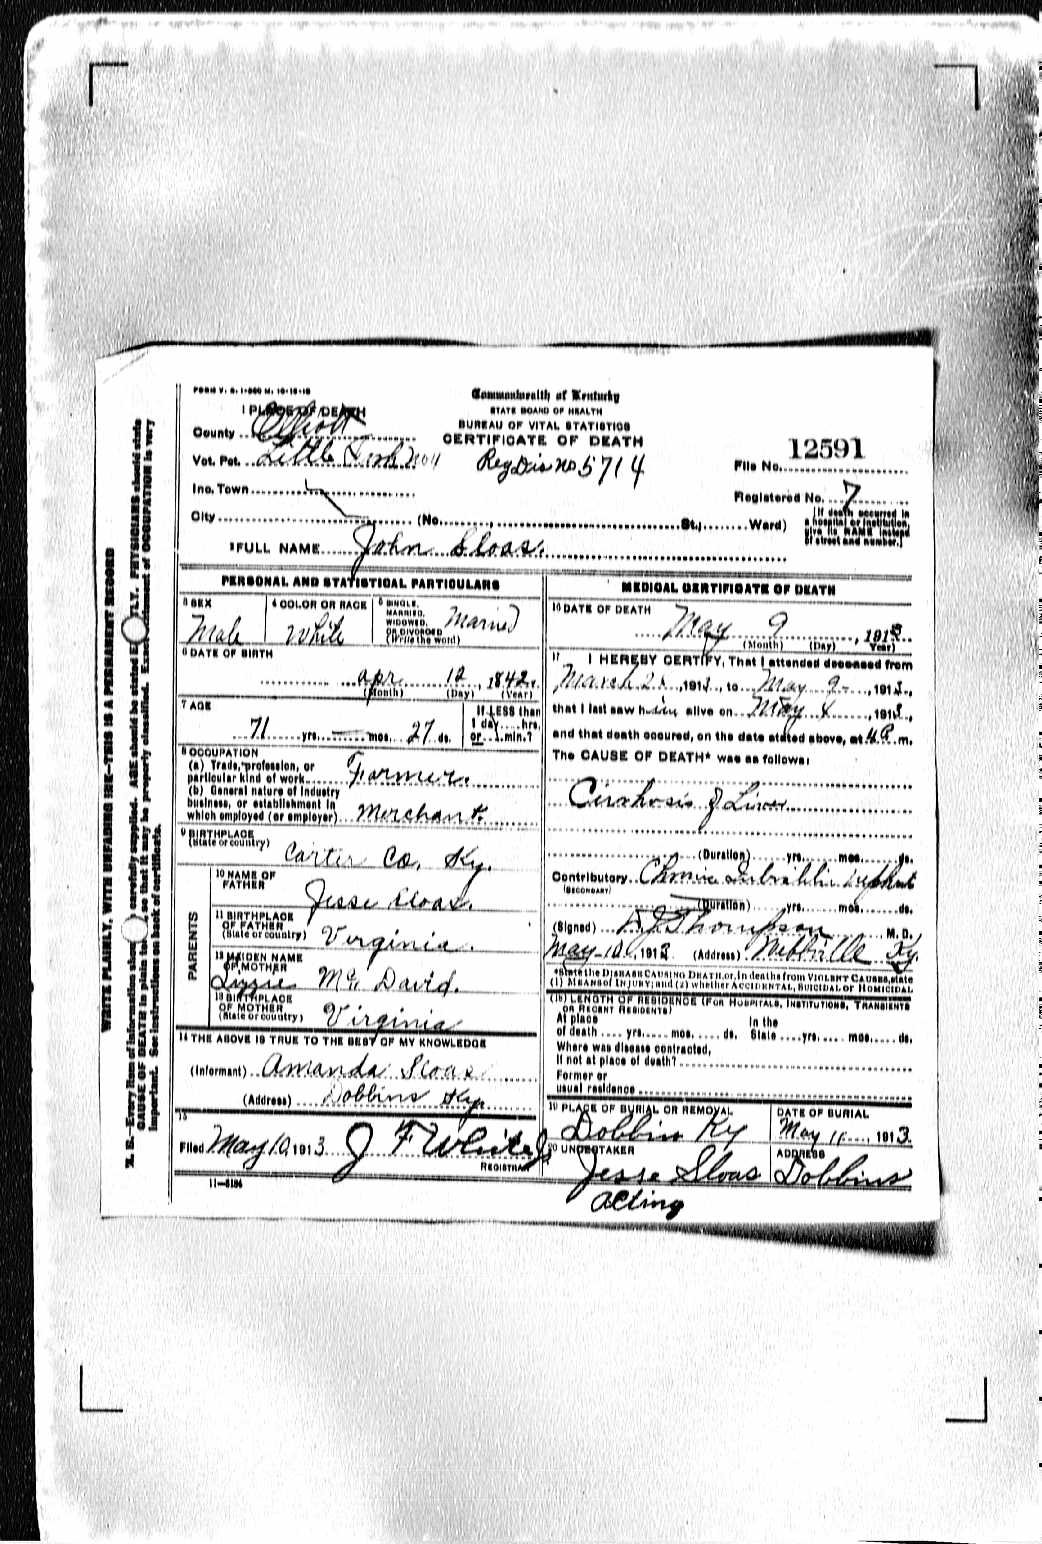 FORM V. S. 1-500 M. 10-16-12
Commonwealth of Kentucky
STATE BOARD OF HEALTH
BUREAU OF VITAL STATISTICS
CERTIFICATE OF DEATH
1 PLACE OF DEATH
County Elliott
Vot. Pct. Little Fork No 4
Reg Dis No 5714
File No. 12591
Inc. Town
Registered No. 7
City (No. , St.; Ward)
[If death occurred in
a hospital or institution,
give its NAME instead
of street and number.]
2 FULL NAME John Sloas.
PERSONAL AND STATISTICAL PARTICULARS
3 SEX
Male
4 COLOR OR RACE
White
5 SINGLE,
MARRIED,
WIDOWED,
OR DIVORCED
(Write the word)
Married
6 DATE OF BIRTH
Apr 12, 1842.
(Month) (Day) (Year)
7 AGE
71 yrs. — mos. 27 ds.
If LESS than
1 day.... hrs.
or.... min.?
8 OCCUPATION
(a) Trade, profession, or
particular kind of work Farmer.
(b) General nature of industry
business, or establishment in
which employed (or employer) Merchant.
9 BIRTHPLACE
(State or country)
Carter Co. Ky.
PARENTS
10 NAME OF
FATHER
Jesse Sloas.
11 BIRTHPLACE
OF FATHER
(State or country) Virginia.
12 MAIDEN NAME
OF MOTHER
Lizzie McDavid.
13 BIRTHPLACE
OF MOTHER
(State or country) Virginia
14 THE ABOVE IS TRUE TO THE BEST OF MY KNOWLEDGE
(Informant) Amanda Sloas
(Address) Dobbins Ky.
15
Filed May 10, 1913 J F White Jr
REGISTRAR
11-5184
MEDICAL CERTIFICATE OF DEATH
16 DATE OF DEATH
May 9, 1913
(Month) (Day) Year)
17 I HEREBY CERTIFY, That I attended deceased from
March 20, 1913, to May 9, 1913,
that I last saw him alive on May 8, 1913,
and that death occured, on the date stated above, at 4 A. m.
The CAUSE OF DEATH* was as follows:
Cirahosis of Liver
(Duration) yrs. mos. ds.
Contributory Chronic
(SECONDARY)
(Duration) yrs. mos. ds.
(Signed) Thompson M. D.
May 10, 1913 (Address) Webbville Ky.
*State the DISEASE CAUSING DEATH, or, in deaths from VIOLENT CAUSES, state
(1) MEANS of INJURY; and (2) whether ACCIDENTAL, SUICIDAL or HOMICIDAL.
(18) LENGTH OF RESIDENCE (FOR HOSPITALS, INSTITUTIONS, TRANSIENTS
OR RECENT RESIDENTS)
At place
of death .... yrs. .... mos. .... ds.
In the
State .... yrs. .... mos. .... ds.
Where was disease contracted,
If not at place of death?
Former or
usual residence
19 PLACE OF BURIAL OR REMOVAL
Dobbins Ky
DATE OF BURIAL
May 11, 1913.
20 UNDERTAKER
Jesse Sloas
acting
ADDRESS
Dobbins
WRITE PLAINLY, WITH UNFADING INK—THIS IS A PERMANENT RECORD
N. B.—Every item of information should be carefully supplied. AGE should be stated EXACTLY. PHYSICIANS should state
CAUSE OF DEATH in plain terms, so that it may be properly classified. Exact statement of OCCUPATION is very
important. See instructions on back of certificate.